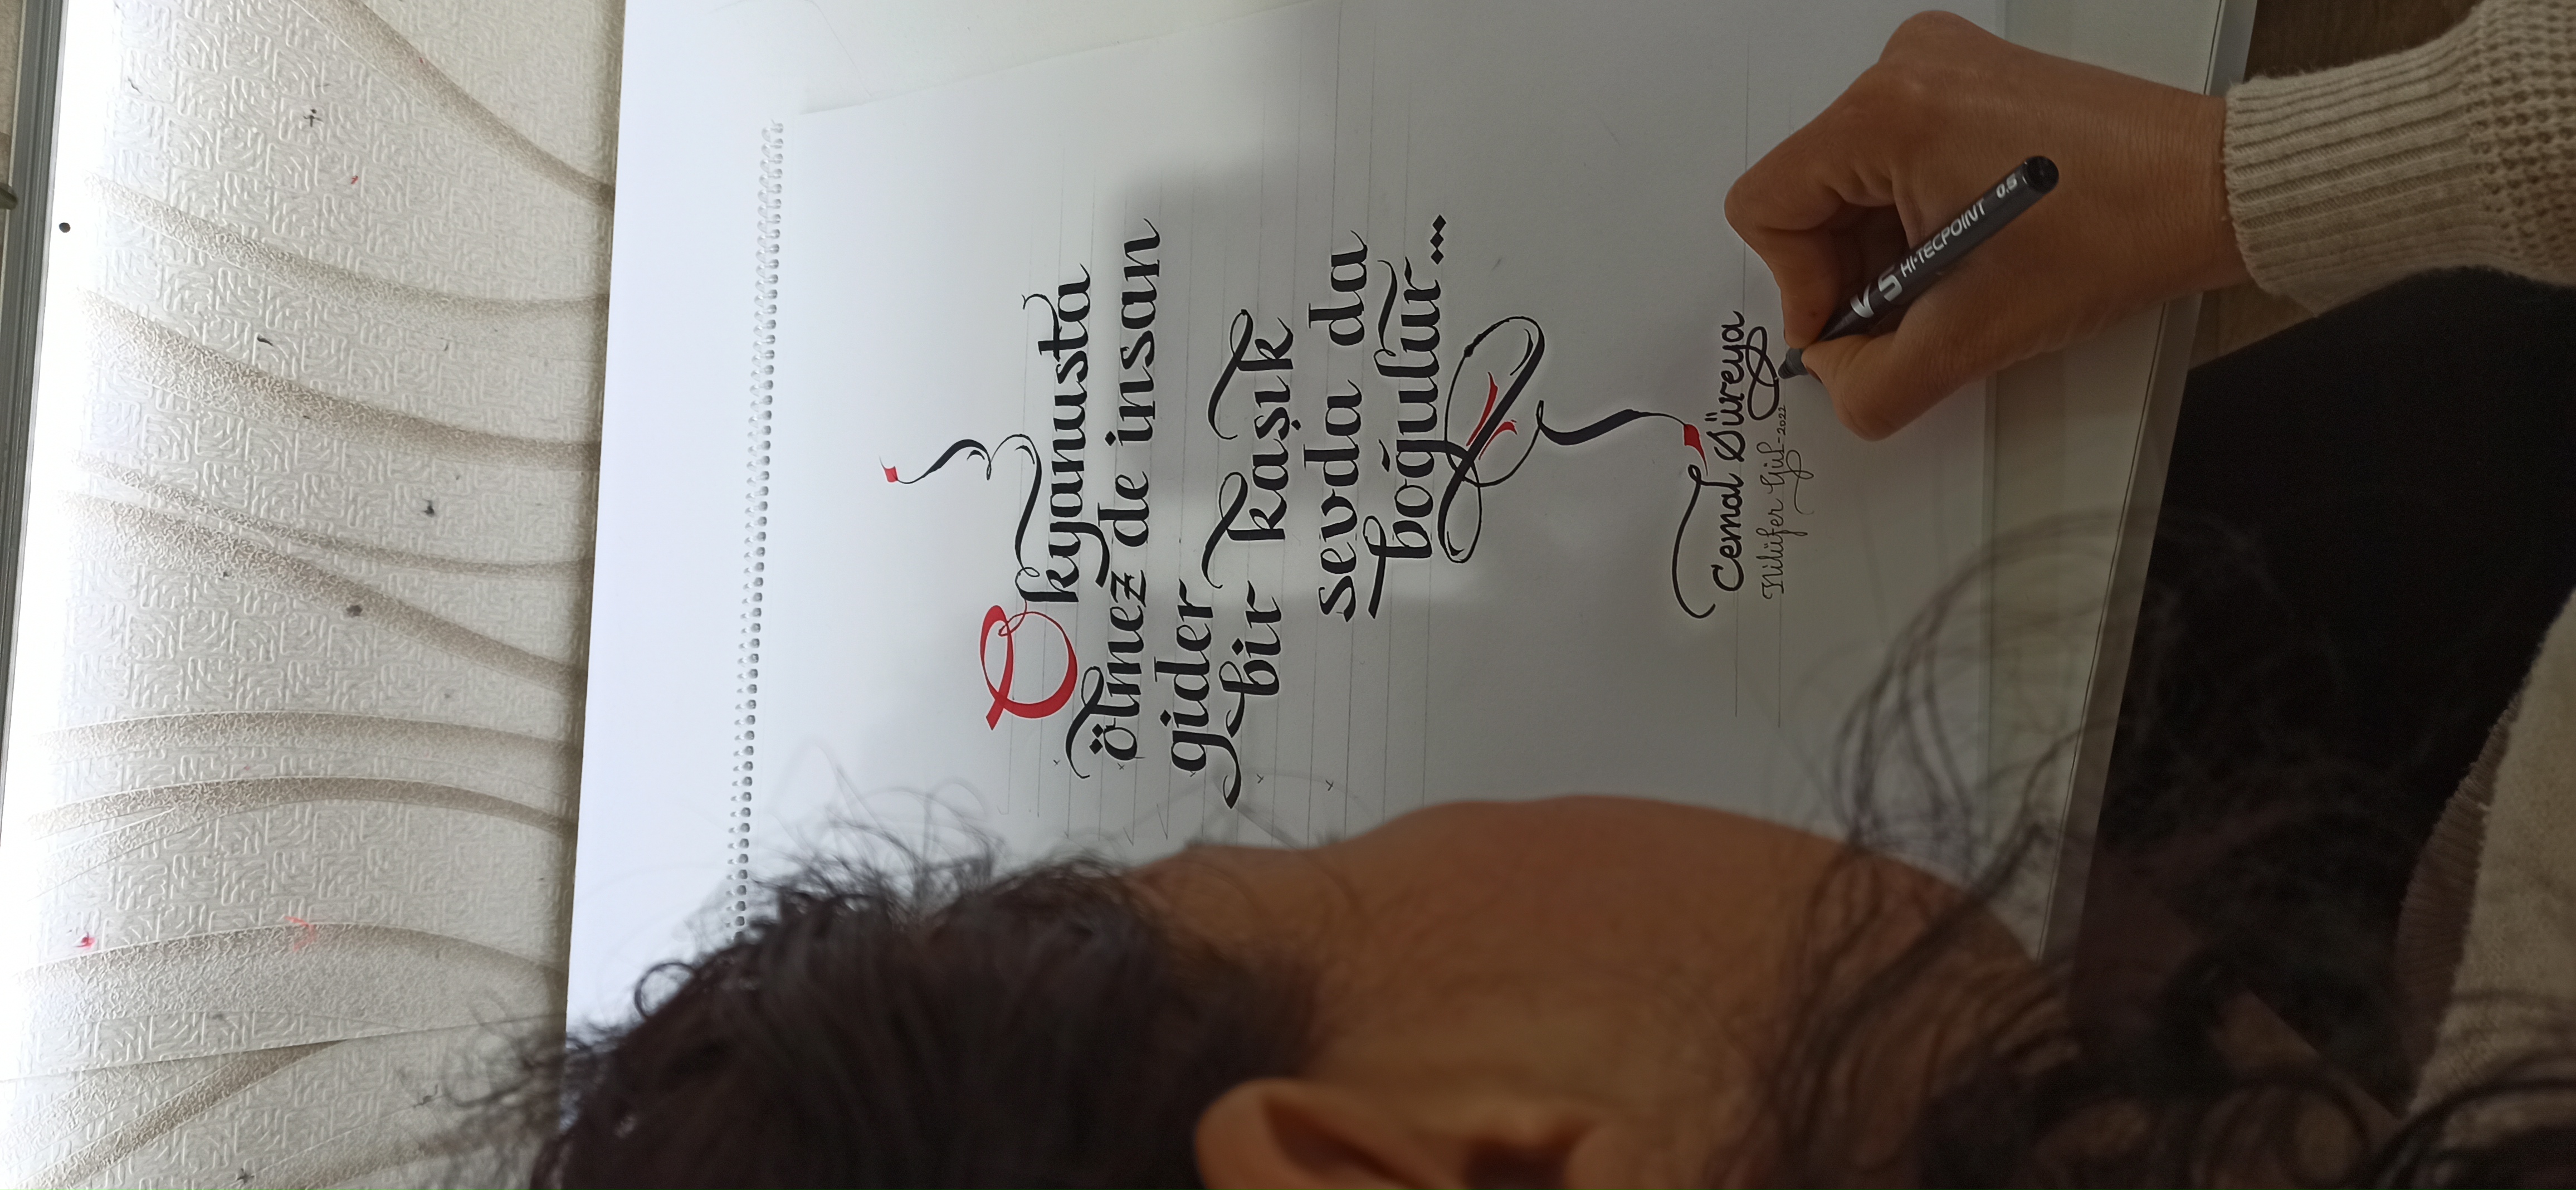 Okyanusta
ölmez de insan
gider
bir kaşık
sevda da
boğulur...
Cemal Süreya
Nilüfer Gül-2022
V5 HI-TECPOINT 0.5